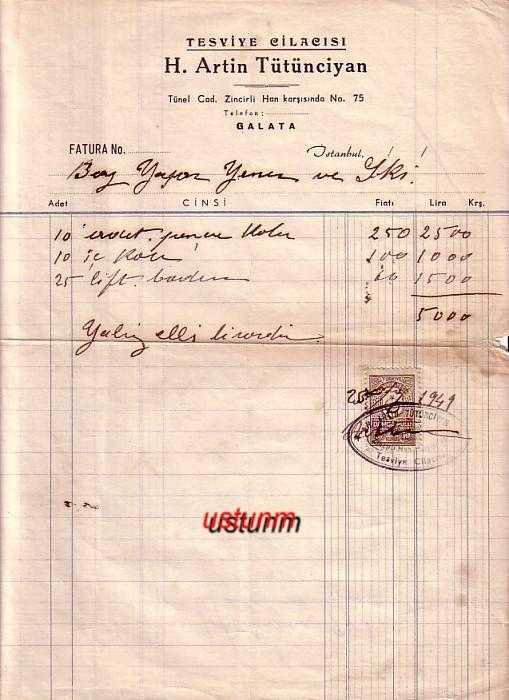 TESVİYE CİLACISI
H. Artin Tütünciyan
Tünel Cad. Zincirli Han karşısında No. 75
Telefon:
GALATA
FATURA No.
İstanbul,
Bay Yaşar Yener ve Şki
Adet CİNSİ Fiatı Lira Krş.
10 adet 250 2500
10 iç kolu 100 1000
25 60 1500
5000
Yalnız elli liradır.
1949
TÜTÜNCİYAN
Tesviye Cilacısı
ustunm